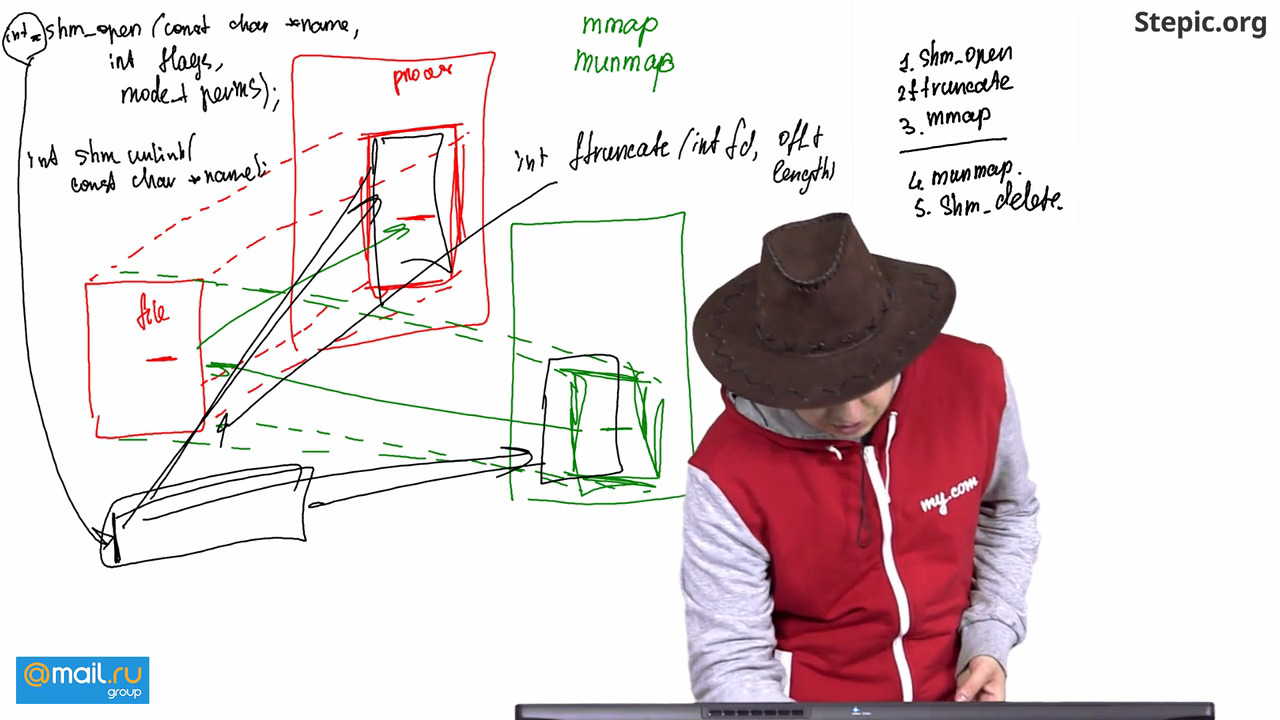 int shm_open (const char *name,
int flags,
mode_t perms);
int shm unlink(
const char *name);
mmap
munmap
процесс
file
int ftruncate (int fd, off_t
length)
1. shm_open
2 ftruncate
3. mmap
4. munmap.
5. shm_delete.
Stepic.org
my.com
@mail.ru
group